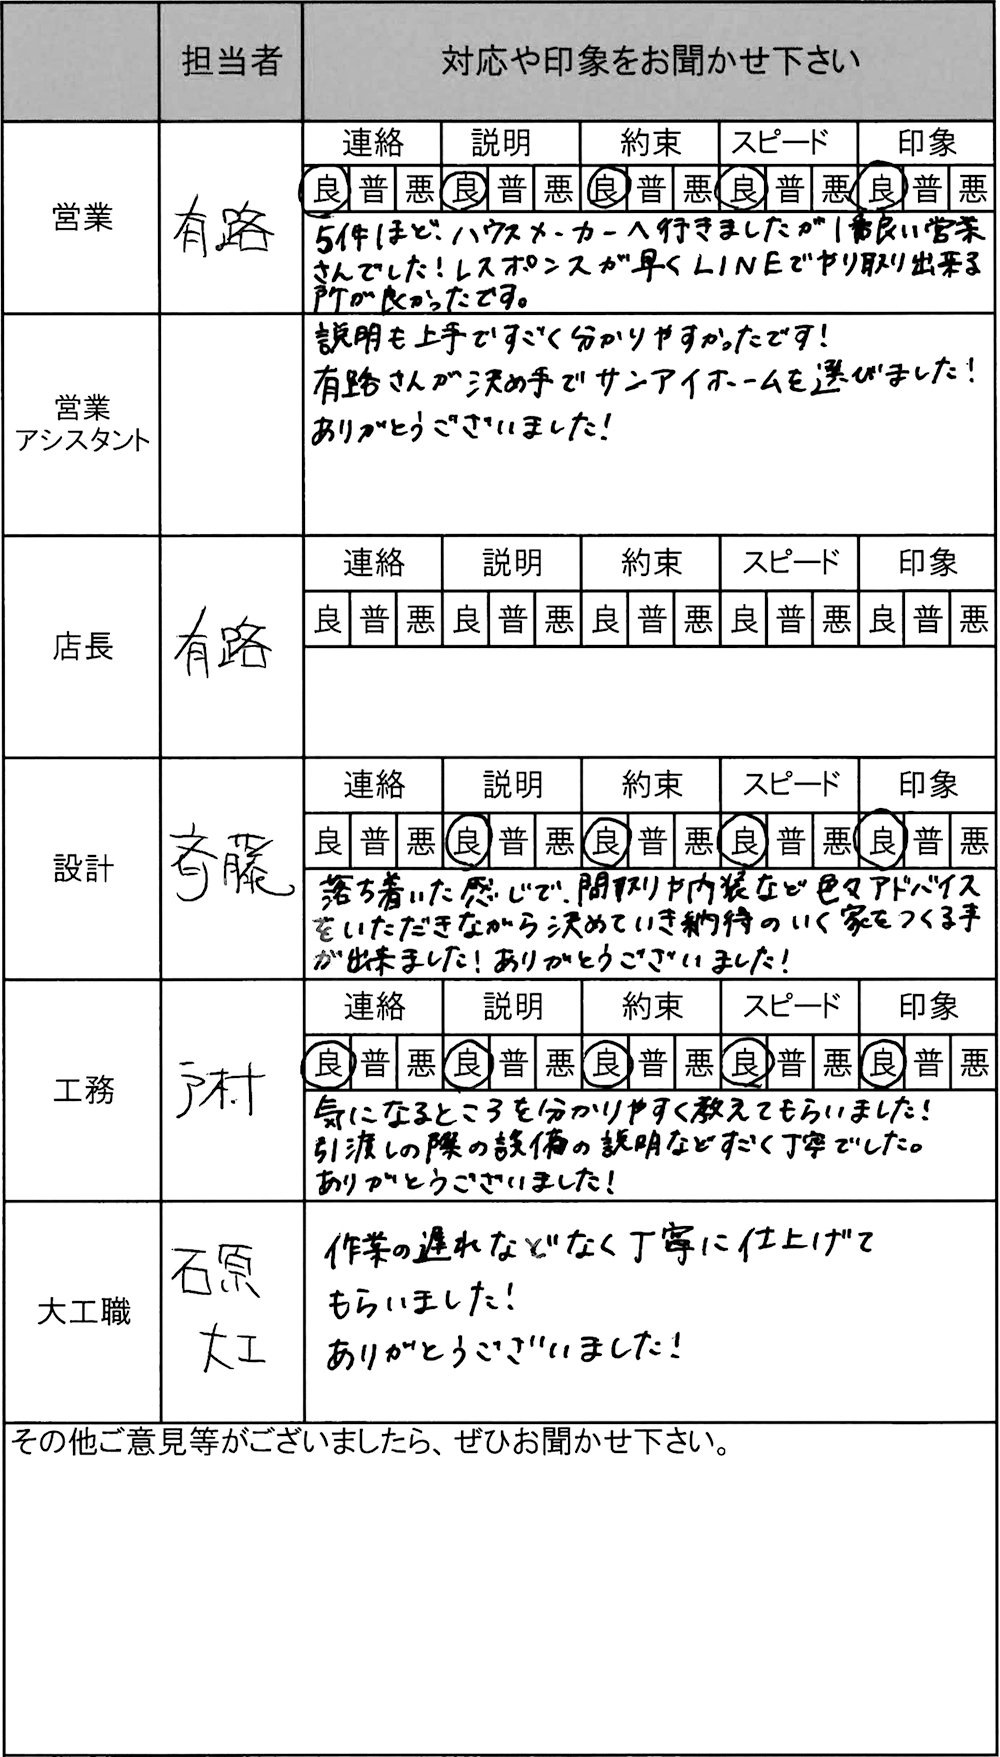 担当者 対応や印象をお聞かせ下さい
連絡 説明 約束 スピード 印象
営業 有路 良 普 悪 良 普 悪 良 普 悪 良 普 悪 良 普 悪
5件ほど、ハウスメーカーへ行きましたが1番良い営業
さんでした!レスポンスが早くLINEでやり取り出来る
所が良かったです。
営業
アシスタント
説明も上手ですごく分かりやすかったです!
有路さんが決め手でサンアイホームを選びました!
ありがとうございました!
連絡 説明 約束 スピード 印象
店長 有路 良 普 悪 良 普 悪 良 普 悪 良 普 悪 良 普 悪
連絡 説明 約束 スピード 印象
設計 斉藤 良 普 悪 良 普 悪 良 普 悪 良 普 悪 良 普 悪
落ち着いた感じで、間取りや内装など色々アドバイス
をいただきながら決めていき納待のいく家をつくる事
が出来ました!ありがとうございました!
連絡 説明 約束 スピード 印象
工務 戸村 良 普 悪 良 普 悪 良 普 悪 良 普 悪 良 普 悪
気になるところを分かりやすく教えてもらいました!
引渡しの際の設備の説明などすごく丁寧でした。
ありがとうございました!
大工職 石原
大工
作業の遅れなどなく丁寧に仕上げて
もらいました!
ありがとうございました!
その他ご意見等がございましたら、ぜひお聞かせ下さい。